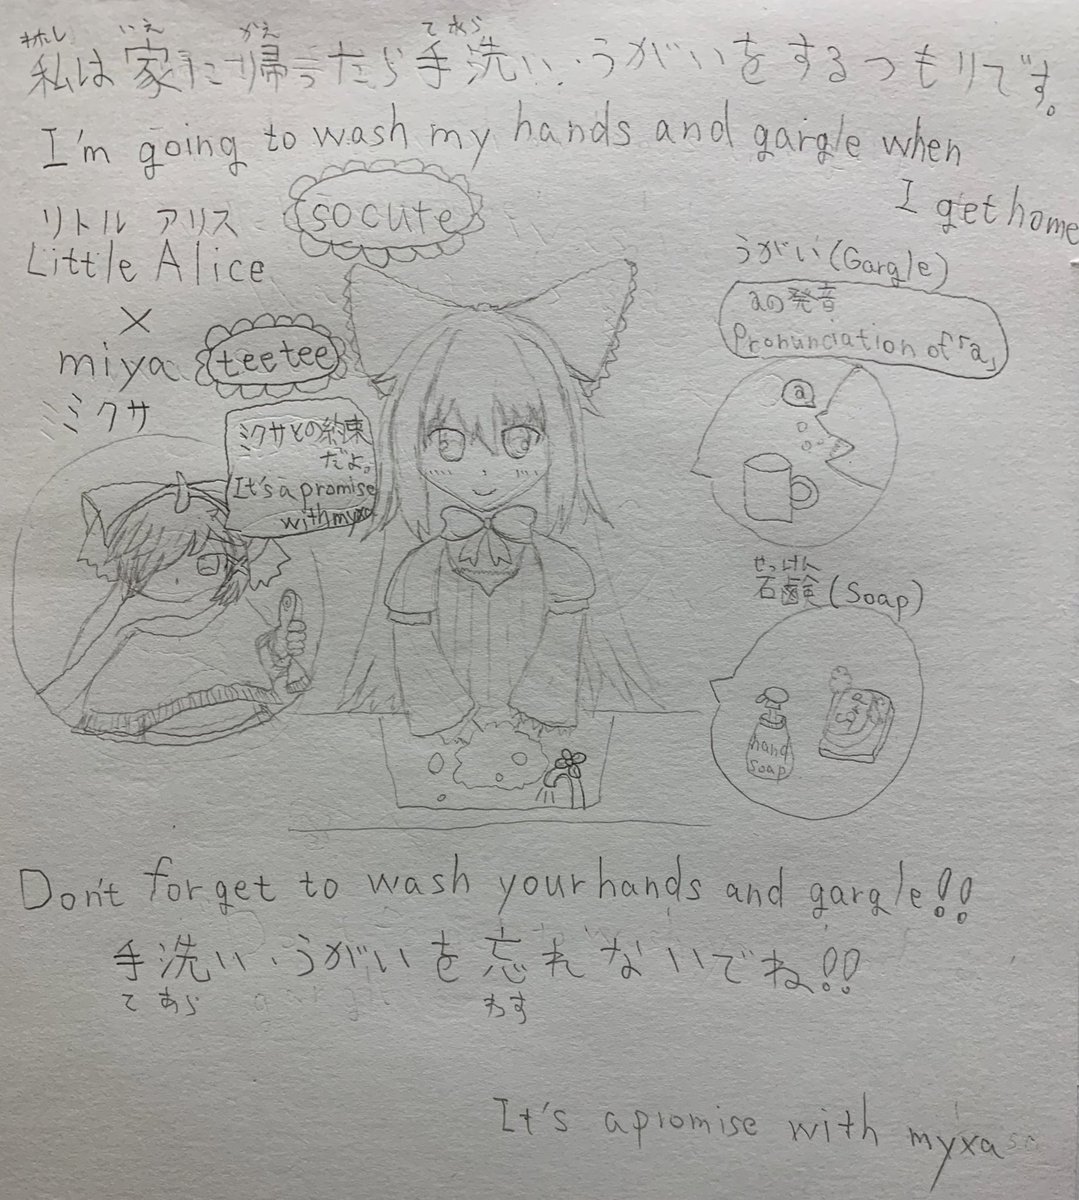 わたし いえ かえ てあら
私は家に帰ったら手洗い、うがいをするつもりです。
I'm going to wash my hands and gargle when
I get home
リトル アリス
Little Alice
×
miya
ミクサ
so cute
teetee
ミクサとの約束
だよ。
It's a promise
with myxa
うがい(Gargle)
aの発音
Pronunciation of「a」
a
せっけん
石鹸(Soap)
hand
soap
Soap
Don't forget to wash your hands and gargle!!
手洗い、うがいを忘れないでね!!
て あら わす
It's a promise with myxa